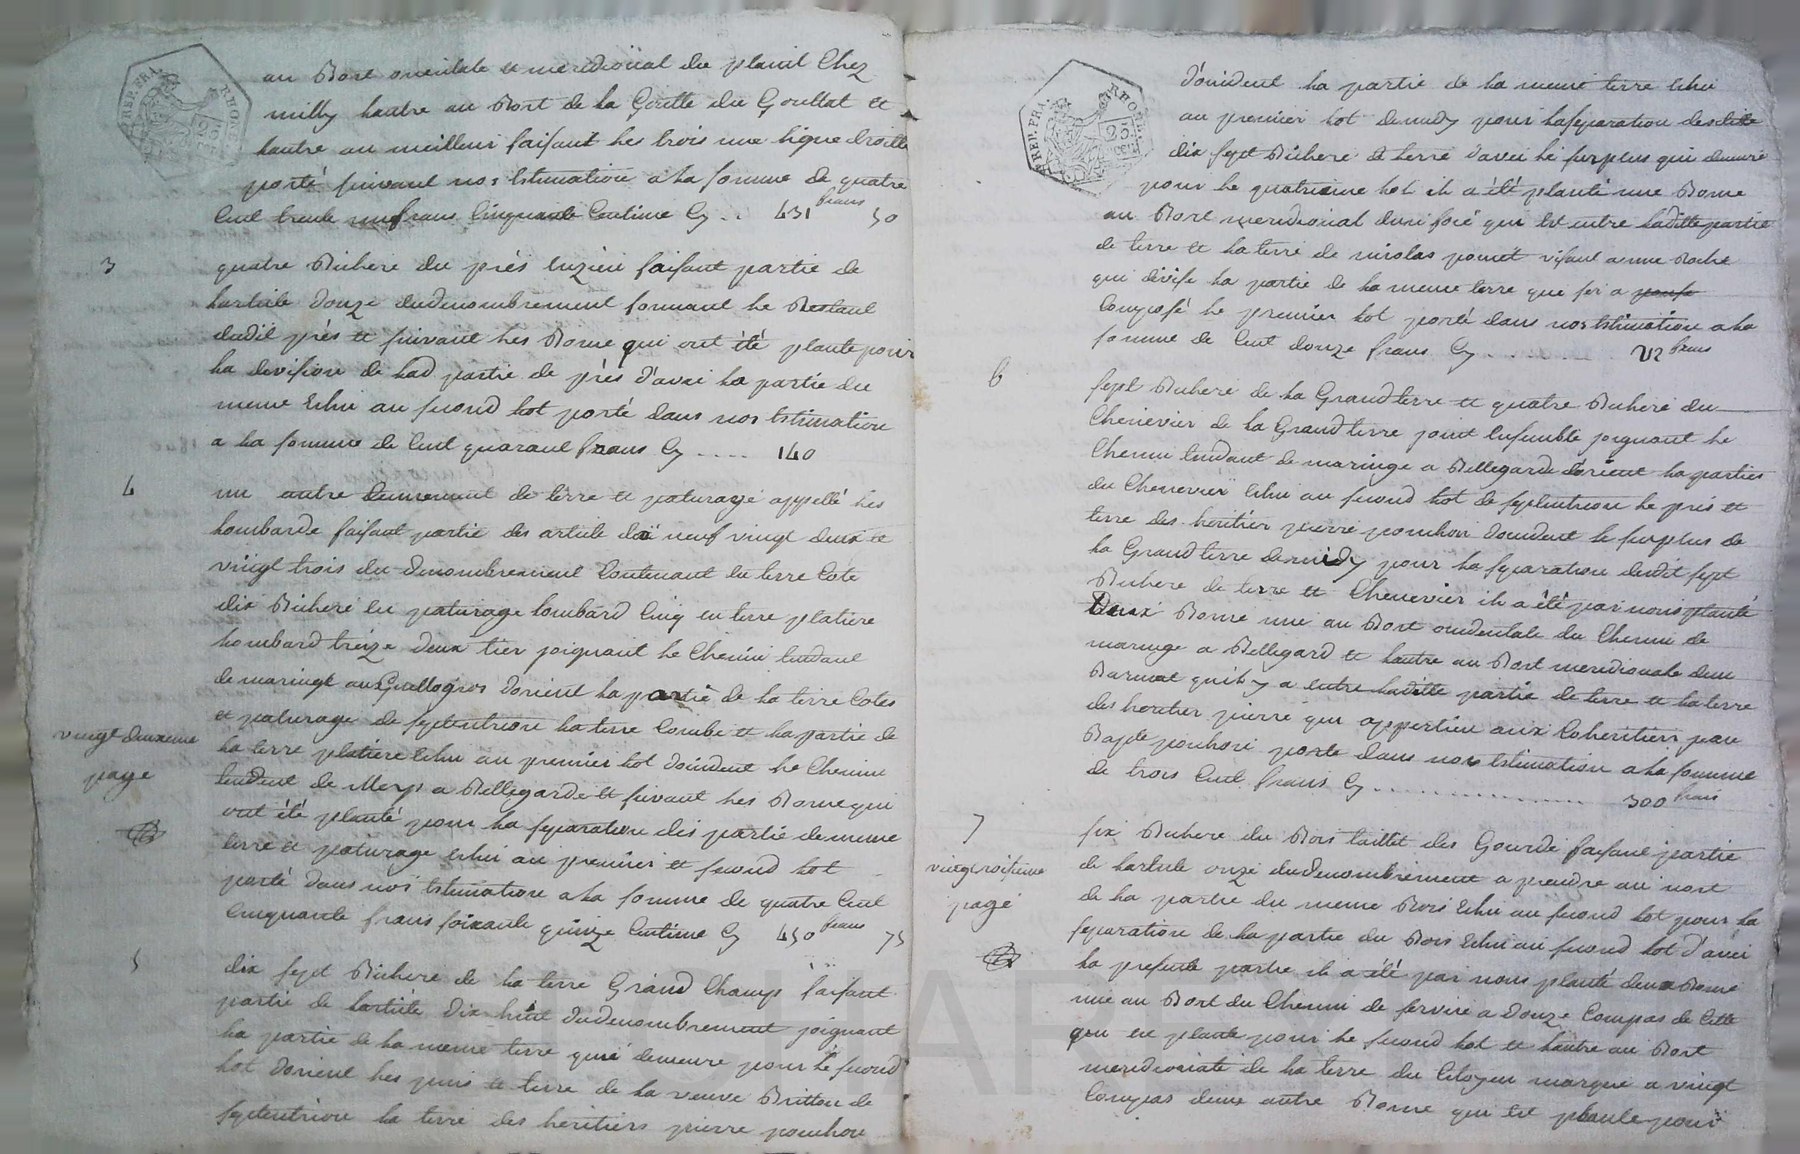 REP.FRA. RHONE 25
au Bort orientale et meridional du planil Chez
milly lautre au Bort de la Goutte du Goullat et
lautre au meilleur faisant les trois une ligne droitte
porté suivant nos Estimation a la somme de quatre
Cent trente un francs Cinquante Centime Cy .. 431 francs 50
3
quatre Bichere du près enzieu faisant partie de
larticle douze dudenombrement formant le Restant
dudit près et suivant les Borne qui ont été plante pour
la division de lad partie de près d'avec la partie du
meme Echu au second lot porté dans nos Estimation
a la somme de Cent quarant francs Cy .... 140
4
un autre tennement de terre et paturage appellé les
lombarde faisant partie des article dix neuf vingt deux et
vingt trois du denombrement Contenant en terre Cote
dix Bichere en paturage lombard Cinq en terre platiere
lombard treize deux tier joignant le Chemin tendant
de maringe au Guallogros dorient la partie de la terre Cotes
et paturage de septentrion la terre Combe et la partie de
la terre platiere Echu au premier lot doccident le Chemin
tendent de Meys a Bellegarde et suivant les Borne qui
ont été planté pour la separation des partie de meme
terre et paturage Echu au premier et second lot
porté dans nos Estimation a la somme de quatre Cent
Cinquante francs soixante quinze Centime Cy 450 francs 75
vingt deuxieme
page
5
dix sept Bichere de la terre Grand Champs faisant
partie de larticle dix huit dudenombrement joignant
la partie de la meme terre qui demeure pour le second
lot dorient les près et terre de la veuve Britton de
septentrion la terre des heritiers pierre ponchon
REP.FRA. RHONE 25
d'occident la partie de la meme terre Echu
au premier lot de midy pour la separation desditte
dix sept Bichere de terre d'avec le surplus qui demeure
pour le quatrieme lot il a été planté une Borne
au Bort meridional dun focé qui est entre laditte partie
de terre et la terre de nicolas pomet visant a une Roche
qui divise la partie de la meme terre que ser a
Composé le premier lot porté dans nos Estimation a la
somme de Cent douze francs Cy ........ 112 francs
6
sept Bichere de la Grand terre et quatre Bichere du
Chenevier de la Grand terre joint Ensemble joignant le
Chemin tendant de maringe a Bellegarde d'orient la parties
du Chenevier Echu au second lot de septentrion le près et
terre des heritier pierre ponchon doccident le surplus de
la Grand terre de midy pour la separation dudit sept
Bichere de terre et Chenevier il a été par nous planté
Deux Borne une au Bort occidentale du Chemin de
maringe a Bellegard et lautre au Bort meridionale dun
Barmat qu'il y a entre laditte partie de terre et la terre
des heritier pierre qui appartien aux Coheritiers Jean
Bapte ponchon porte dans nos Estimation a la somme
de trois Cent francs Cy ................ 300 francs
7
six Bichere du Bois taillet des Gourde faisant partie
de larticle onze dudenombrement a prendre au nort
de la partie du meme Bois Echu au second lot pour la
separation de la partie du Bois Echu au second lot d'avec
la presente partie il a été par nous planté deux Borne
une au Bort du Chemin de servire a douze Compas de Cette
qui est plante pour le second lot et lautre au Bort
meridionale de la terre du Citoyen marque a vingt
Compas dune autre Borne qui est plante pour
vingt roisieme
page